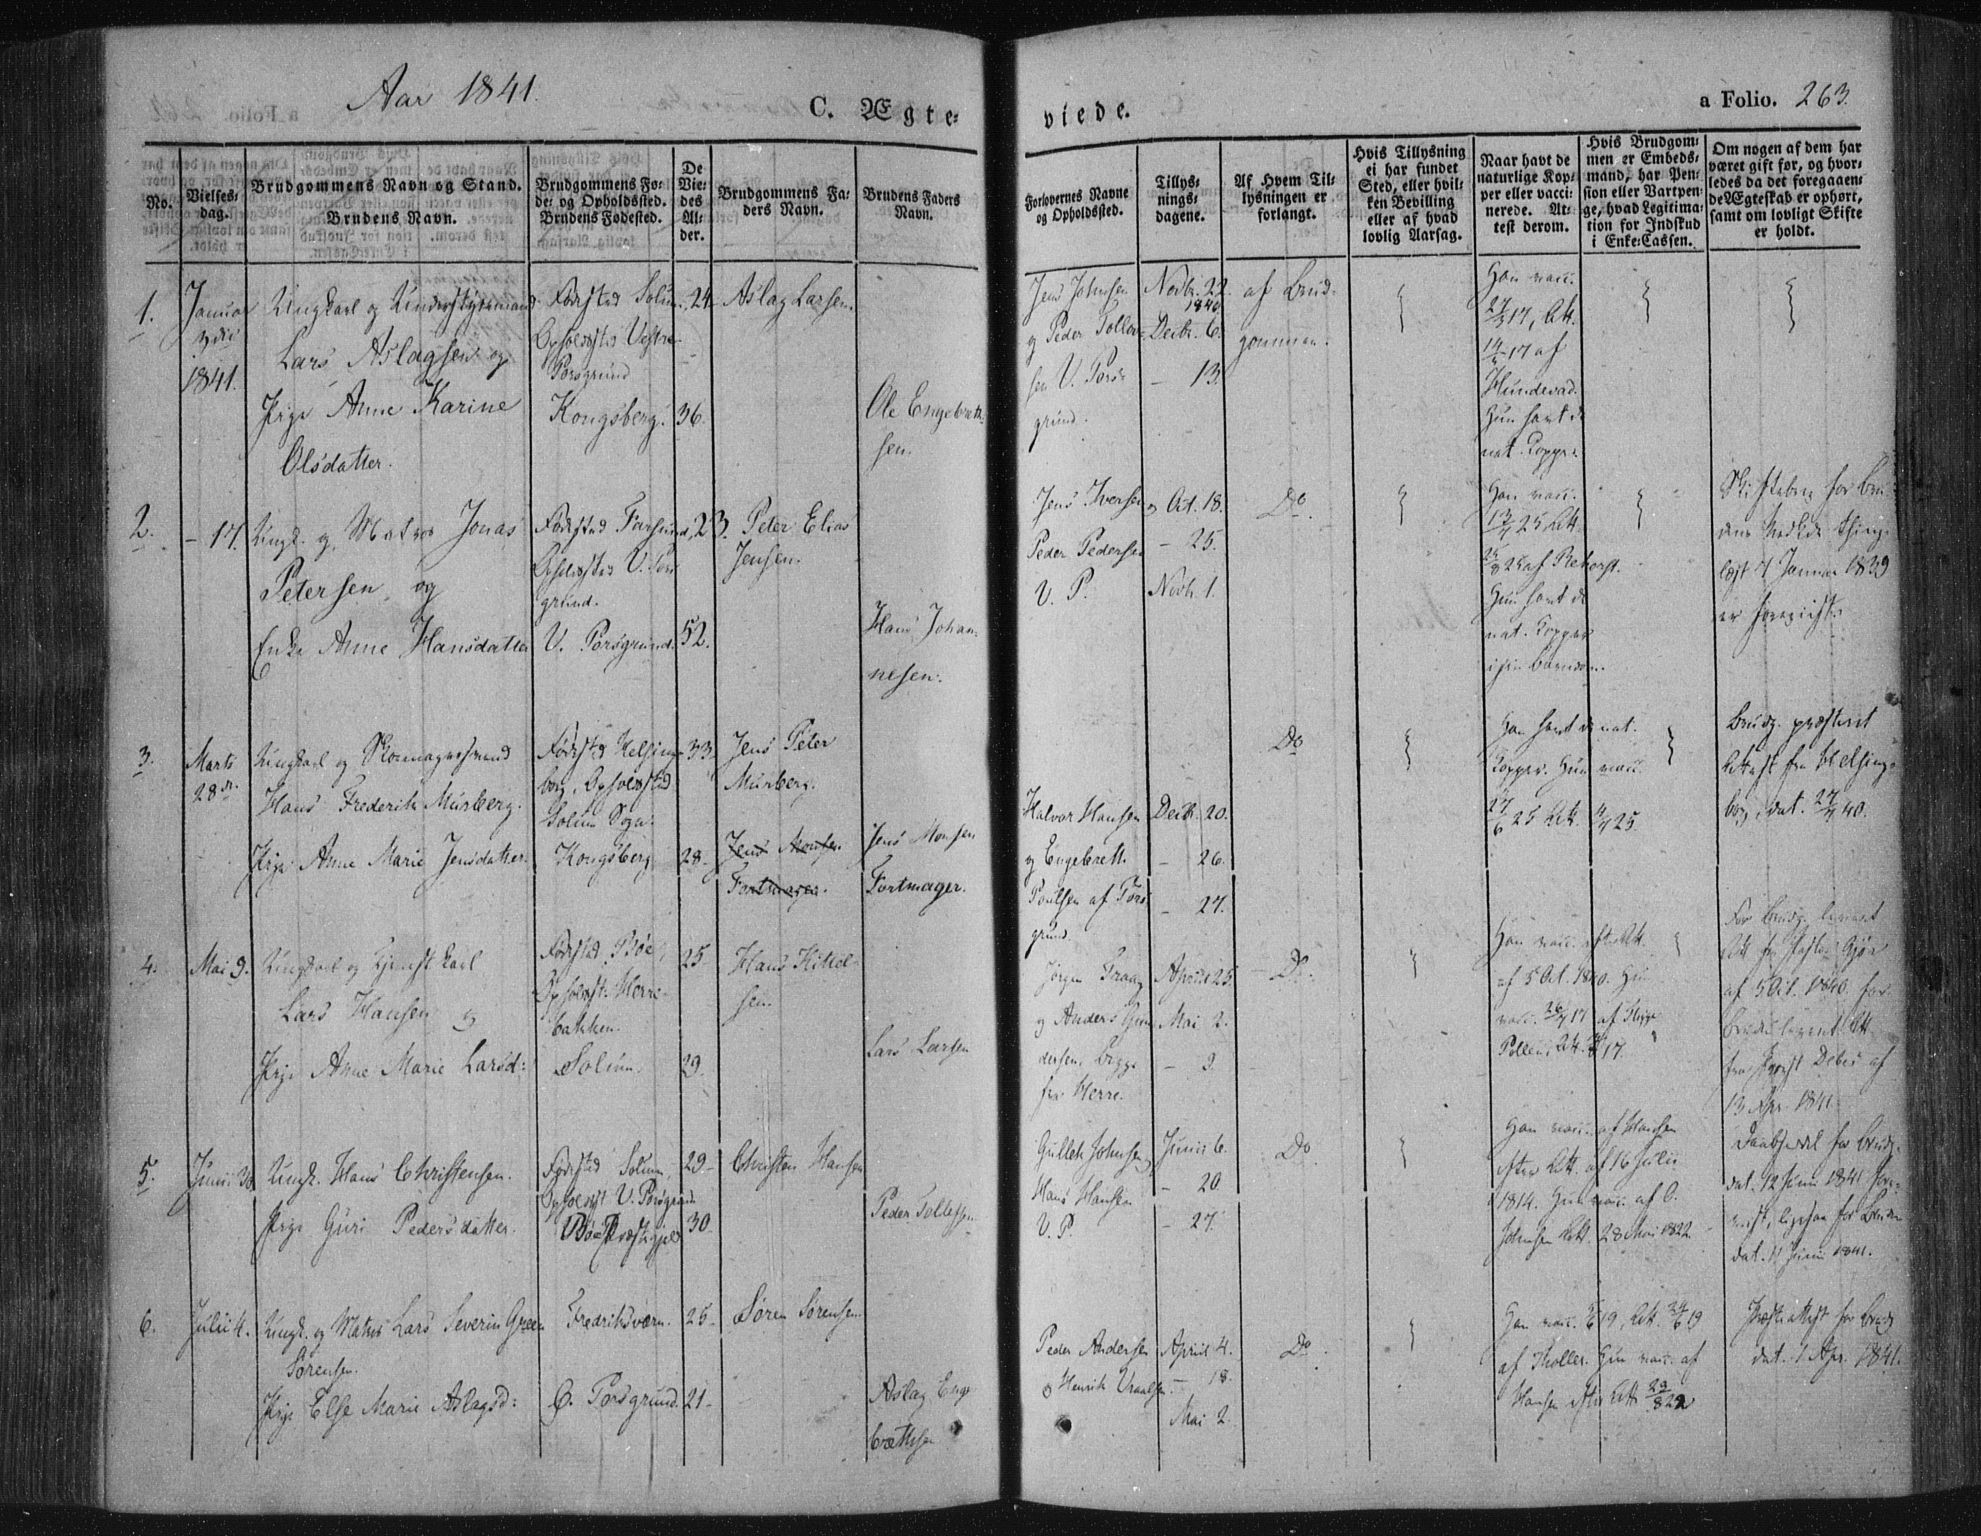 Aar 1841.
C. Ægte-
viede.
a Folio. 263.
No.
Vielses-
dag.
Brudgommens Navn og Stand.
Brudens Navn.
Brudgommens Fø-
de- og Opholdssted.
Brudens Fødested.
De
Vie-
des
Al-
der.
Brudgommens Fa-
ders Navn.
Brudens Faders
Navn.
Forlovernes Navne
og Opholdssted.
Tillys-
nings-
dagene.
Af Hvem Til-
lysningen er
forlangt.
Hvis Tillysning
ei har fundet
Sted, eller hvil-
ken Bevilling
eller af hvad
lovlig Aarsag.
Naar havt de
naturlige Kop-
per eller vacci-
nerede. At-
test derom.
Hvis Brudgom-
men er Embeds-
mand, har Pen-
sion eller Vartpen-
ge, hvad Legitima-
tion for Indskud
i Enke-Cassen.
Om nogen af dem har
været gift før, og hvor-
ledes da det foregaaen-
de Ægteskab er ophørt,
samt om lovligt Skifte
er holdt.
1.
Januar
3die
1841.
Ungkarl og Understyrmand
Lars Aslagsen og
Pige Anne Karine
Olsdatter.
Fødested Solum
Opholdsted Vestre
Porsgrund
Kongsberg.
24
36.
Aslag Larsen.
Ole Engebreth-
sen.
Jens Johnsen
og Peder Tollev-
sen V. Pors-
grund.
Novbr. 22.
1840
Decbr. 6.
— 13.
af Brud-
gommen.
Han vacc.
17, Att.
17 af
Hundevad.
Hun havt de
nat. Kopper.
2.
— 17.
Ungk. og Matros Jonas
Petersen og
Enke Anne Hansdatter
Fødested Farsund
Opholdsted V. Pors
grund.
V. Porsgrund.
23.
52.
Peter Elias
Jensen.
Hans Johan-
nesen.
Jens Iversen og
Peder Pedersen
V. P.
Oct. 18.
— 25.
Novbr. 1.
Do.
Han vacc.
25 Att.
25 af Rehorst.
Hun havt de
nat. Kopper
i sin Barndom.
Skiftebrev for Bru-
dens Vedkde thing-
læst 7 Januar 1839
er forevist.
3.
Marts
28de.
Ungkarl og Skomagersvend
Hans Frederik Murberg.
Pige Anne Marie Jensdatter.
Fødested Helsing-
borg, Opholdssted
Solum Sogn.
Kongsberg
33
28
Jens Peter
Murberg.
Jens Monsen
Fortmager.
Jens Monsen
Fortmager.
Halvor Hansen
og Engebreth
Poulsen af Pors
grund
Decbr. 20.
— 26.
— 27.
Do
Han havt de nat.
Kopper. Hun vacc.
27/6 25 Att. 25.
Brudg. præsteret
Attest fra Helsing-
borg, dat. 40.
4.
Mai 9.
Ungkarl og Tjenestkarl
Lars Hansen og
Pige Anne Marie Larsd:
Fødested Bøe,
Opholdst. Herre-
bakken.
Solum.
25
29.
Hans Kittel-
sen.
Lars Larsen
Jørgen Traag
og Anders Gun-
dersen, begge
fra Herre.
April 25.
Mai 2.
— 9.
Do.
Han vacc. efter Att.
af 5 Oct. 1840. Hun
vacc. 17 af
Att. 17.
For Brudg. leveret
Att. fra Pastor
af 5 Oct. 1840. for
Bruden leveret Att.
fra Provst Debes af
13 Apr. 1841
5.
Junii 30
Ungk. Hans Christensen.
Pige Guri Pedersdatter.
Fødested Solum
Opholdst V. Porsgrund
Bøe Præstegjeld
29
30.
Christen Hansen
Peder Tollefsen
Gullek Johnsen
Hans Hansen
V. P.
Junii 6.
— 20.
— 27.
Do
Han vacc. af Hansen
efter Att. af 16 Julii
1814. Hun vacc. af O.
Johnsen Att. 28 Mai 1822.
Daabsedel for Brudg.
dat. 12 Junii 1841 fore-
vist, ligesaa for Bruden
dat. 11 Junii 1841.
6.
Julii 4.
Ungk. og Matros Lars Severin Green
Sørensen.
Pige Else Marie Aslagsd:
Fredriksværn.
Ø. Porsgrund.
25
21
Søren Sørensen
Aslag Enge
brethsen
Peder Andersen
og Henrik Uraalsen
April 4.
— 18.
Mai 2.
Do.
Han vacc. 19, Att. 19
af Tholler. Hun vacc. af
Hansen efter Att. 29/8 22
Præsteattest for Brudg
dat. 1 Apr. 1841.